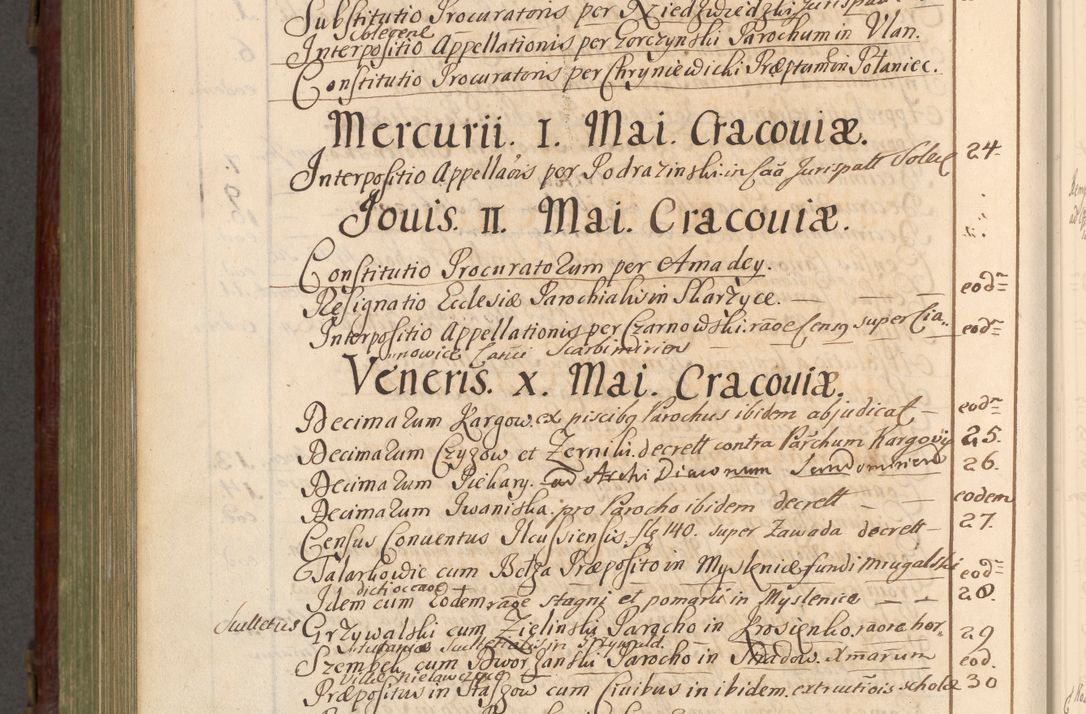 Substitutio Procuratoris per Niedzwiedzki Jurispat
Colegene
Interpositio Appellationis per Gorczynski Parochum in Vlan.
Constitutio Procuratoris per Chryniewicki Præptum in Połaniec.
Mercurii. I. Mai. Cracouiæ.
Interpositio Appellaōis per Podrazinski in Caā Jurispatt Solec 24.
Jouis. II. Mai. Cracouiæ.
Constitutio Procuratorum per Amadey.
Resignatio Ecclesiæ Parochialis in Skarzyce. — — — eod=
Interpositio Appellationis per Czarnowski. raõe Censq super Cia„ eod=
nnowice Canci Scarbimirien
Veneris. X. Mai. Cracouiæ.
Decimarum Kargow. ex piscibq Parochus ibidem abjudicat — eod=
Decimarum Czyzow et Zerniki. decrett contra Parchum Kargow 25.
Decimarum Piekary. Archi Diaconum Sendomirien 26.
Decimarum Iwaniska. pro Parocho ibidem decrett — — eodem
Census Conuentus Ilcussiensis. flg 140. super Zawada decrett — 27.
Talarkowic cum Betza Præposito in Myslenice fundi Mrugalski eod=
dicti occaõe
Idem cum Eodem raõe stagni et pomarii in Myslenice — — 28.
Scultetus Grzywalski cum Zielinski Parocho in Krosienko. raore hor„ 29
Szembek cum Dworzanski Parocho in Radow. Xmarum eod.
Præpositus in Staszow cum Ciuibus in ibidem. extructiois scholæ 30